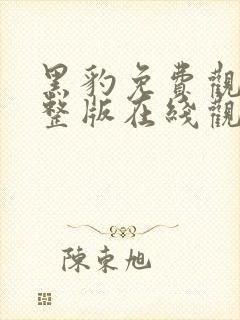 黑豹免費觀
整版在綫觀
陳東旭